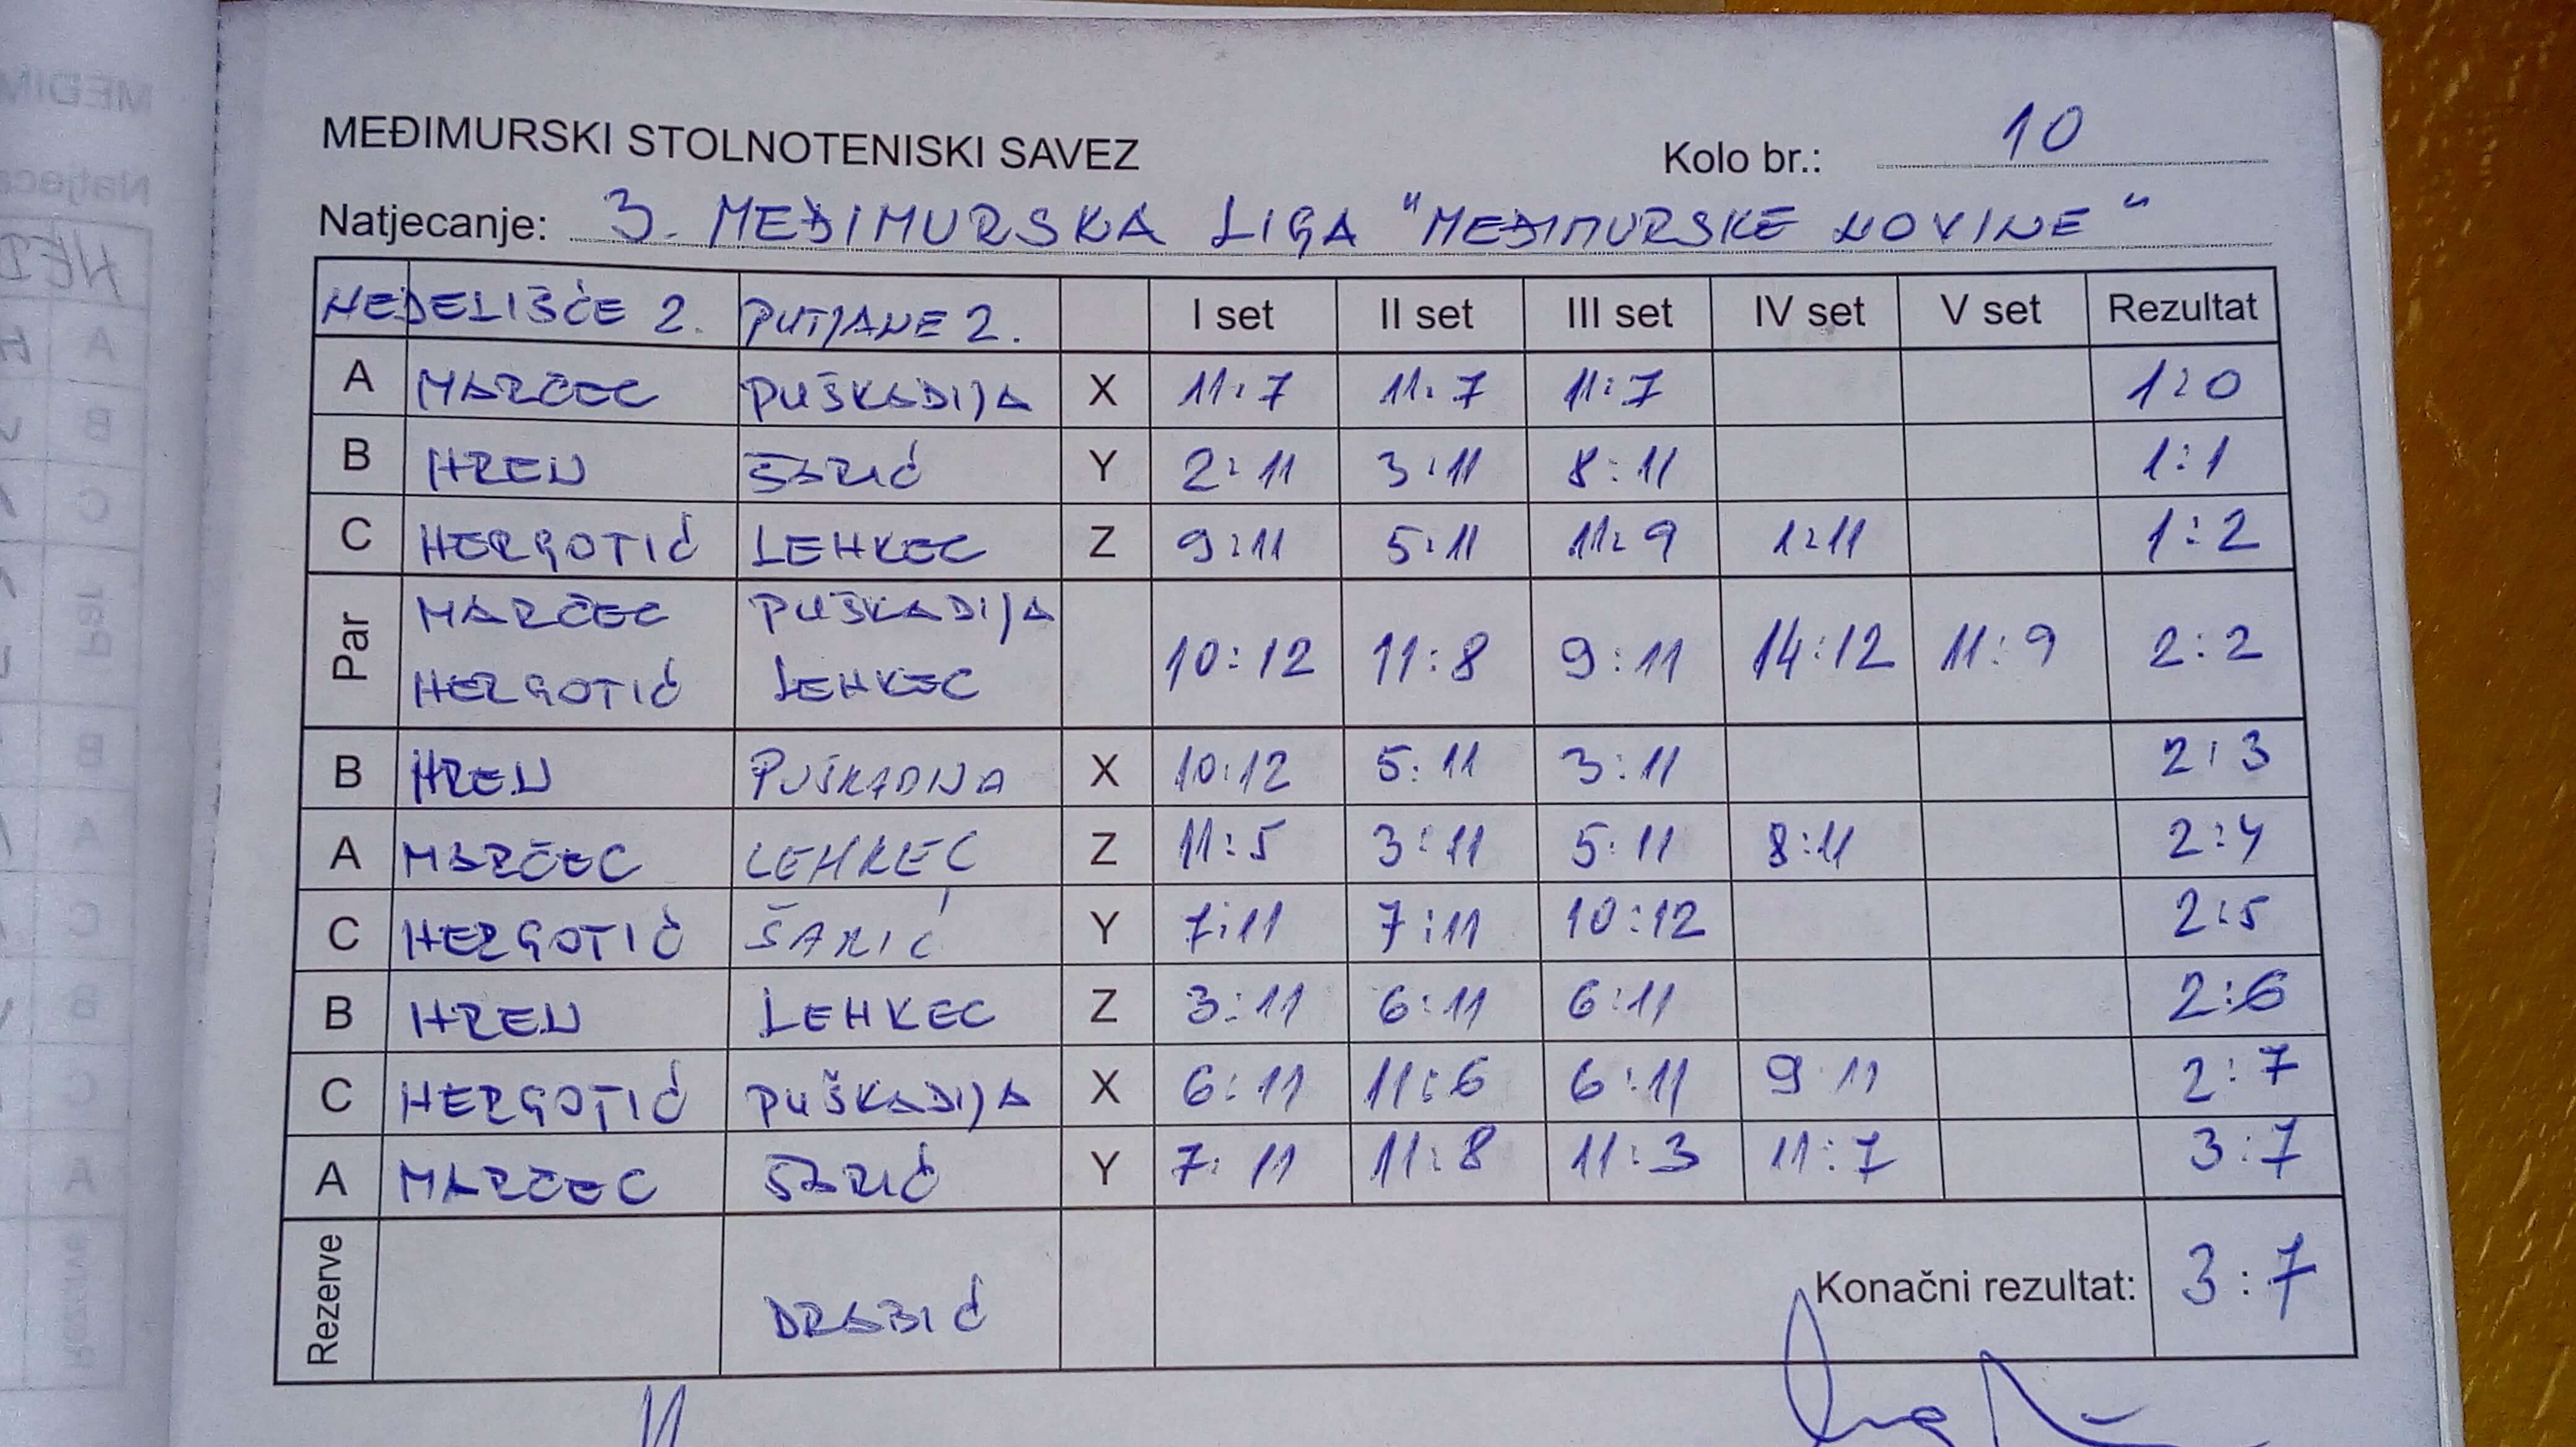 MEĐIMURSKI STOLNOTENISKI SAVEZ Kolo br.: 10
Natjecanje: 3. MEĐIMURSKA LIGA "MEĐIMURSKE NOVINE"
NEDELIŠĆE 2. PUTJANE 2. I set II set III set IV set V set Rezultat
A MARČEC PUŠKADIJA X 11:7 11:7 11:7 1:0
B HREN ŠARIĆ Y 2:11 3:11 8:11 1:1
C HERGOTIĆ LEHKEC Z 9:11 5:11 11:9 1:11 1:2
Par MARČEC PUŠKADIJA
HERGOTIĆ LEHKEC 10:12 11:8 9:11 14:12 11:9 2:2
B HREN PUŠKADIJA X 10:12 5:11 3:11 2:3
A MARČEC LEHKEC Z 11:5 3:11 5:11 8:11 2:4
C HERGOTIĆ ŠARIĆ Y 7:11 7:11 10:12 2:5
B HREN LEHKEC Z 3:11 6:11 6:11 2:6
C HERGOTIĆ PUŠKADIJA X 6:11 11:6 6:11 9:11 2:7
A MARČEC ŠARIĆ Y 7:11 11:8 11:3 11:7 3:7
Rezerve DRABIĆ Konačni rezultat: 3:7